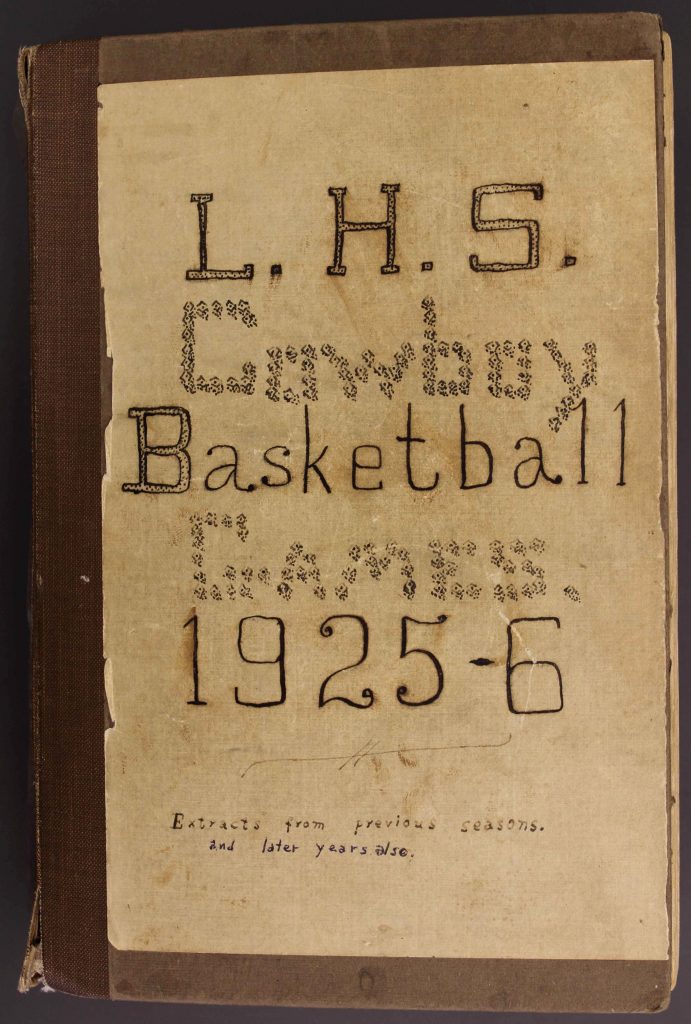 L. H. S.
Cowboy
Basketball
Games.
1925-6
Extracts from previous seasons.
and later years also.